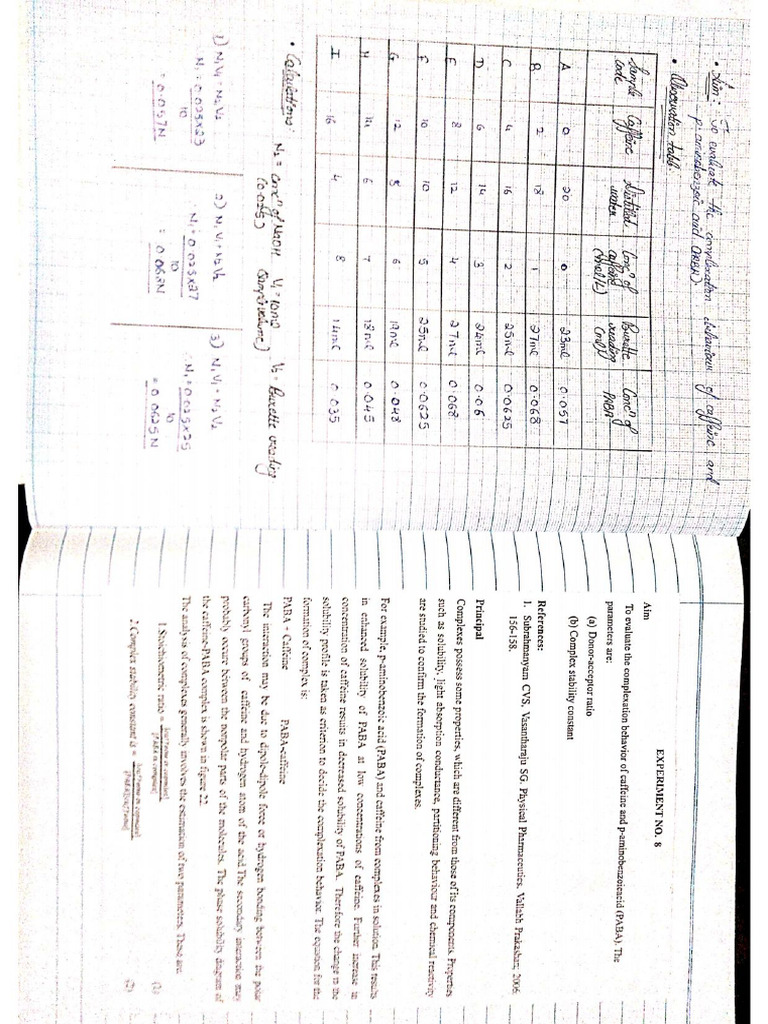 • Aim: To evaluate the complexation behaviour of caffeine and
p-aminobenzoic acid (PABA)
• Observation table.
Sample code | Caffeine | Distilled water | Concn of caffeine (mol/L) | Burette reading (ml) | Concn of PABA
A | 0 | 20 | 0 | 23ml | 0.057
B | 2 | 18 | 1 | 27ml | 0.068
C | 4 | 16 | 2 | 25ml | 0.0625
D | 6 | 14 | 3 | 24ml | 0.06
E | 8 | 12 | 4 | 27ml | 0.068
F | 10 | 10 | 5 | 25ml | 0.0625
G | 12 | 8 | 6 | 19ml | 0.048
H | 14 | 6 | 7 | 18ml | 0.045
I | 16 | 4 | 8 | 14ml | 0.035
• Calculations: N2 = concn of NaOH V1 = 10ml V2 = Burette reading
(0.025) (Sample volume)
1) N1V1 = N2V2
N1 = 0.025x23
10
= 0.057N
2) N1V1 = N2V2
N1 = 0.025x27
10
= 0.068N
3) N1V1 = N2V2
N1 = 0.025x25
10
= 0.0625N
EXPERIMENT NO. 8
Aim
To evaluate the complexation behavior of caffeine and p-aminobenzoicacid (PABA). The
parameters are:
(a) Donor-acceptor ratio
(b) Complex stability constant
References:
1. Subrahmanyam CVS, Vasantharaju SG. Physical Pharmaceutics, Vallabh Prakashan; 2006.
156-158.
Principal
Complexes possess some properties, which are different from those of its components. Properties
such as solubility, light absorption conductance, partitioning behaviour and chemical reactivity
are studied to confirm the formation of complexes.
For example, p-aminobenzoic acid (PABA) and caffeine from complexes in solution. This results
in enhanced solubility of PABA at low concentrations of caffeine. Further increase in
concentration of caffeine results in decreased solubility of PABA. Therefore the change in the
solubility profile is taken as criterion to decide the complexation behavior. The equation for the
formation of complex is:
PABA + Caffeine PABA-caffeine
The interaction may be due to dipole-dipole force or hydrogen bonding between the polar
carbonyl groups of caffeine and hydrogen atom of the acid.The secondary interaction may
probably occur between the nonpolar parts of the molecules. The phase solubility diagram of
the caffeine-PABA complex is shown in figure 22.
The analysis of complexes generally involves the estimation of two parameters. These are:
1.Stoichiometric ratio = [caffeine in complex]
[PABA in complex] (1)
2.Complex stability constant is = [caffeine in complex]
[PABA][caffeine] (2)